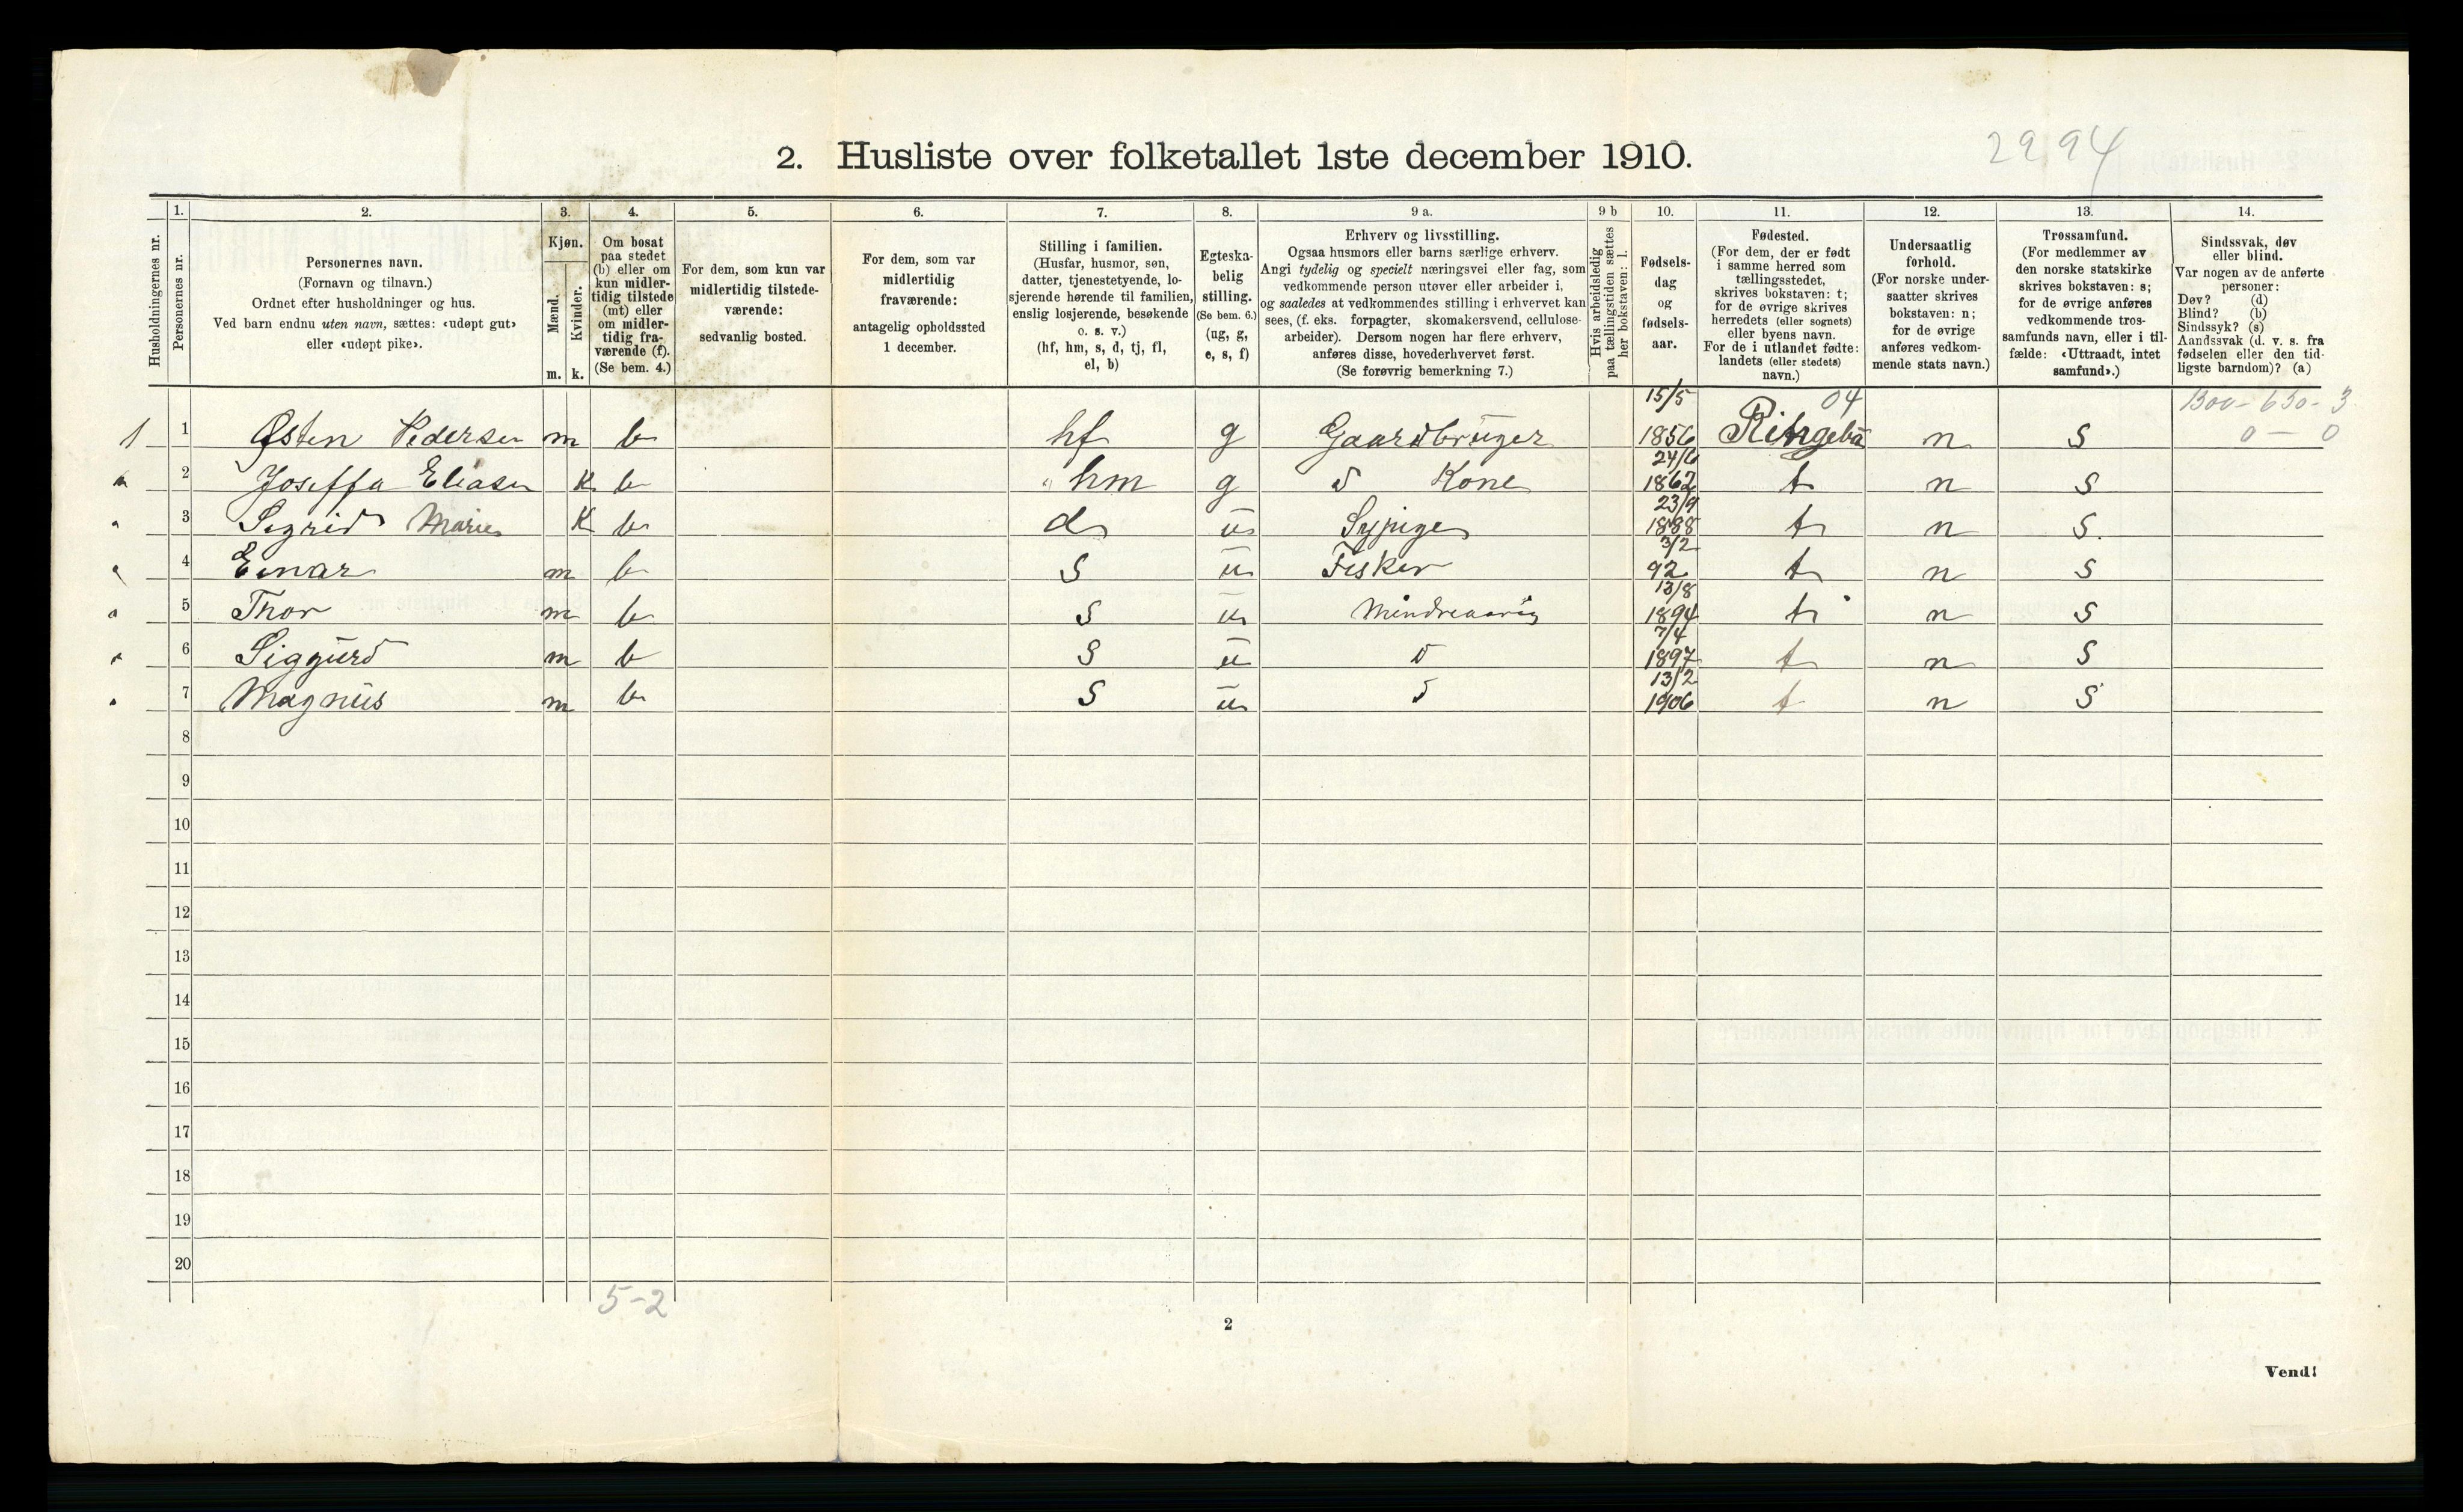 2. Husliste over folketallet 1ste december 1910.
2994
Husholdningernes nr.
1. Personernes nr.
2. Personernes navn.
(Fornavn og tilnavn.)
Ordnet efter husholdninger og hus.
Ved barn endnu uten navn, sættes: «udøpt gut»
eller «udøpt pike».
3. Kjøn.
Mænd. Kvinder.
m. k.
4. Om bosat
paa stedet
(b) eller om
kun midler-
tidig tilstede
(mt) eller
om midler-
tidig fra-
værende (f).
(Se bem. 4.)
5. For dem, som kun var
midlertidig tilstede-
værende:
sedvanlig bosted.
6. For dem, som var
midlertidig
fraværende:
antagelig opholdssted
1 december.
7. Stilling i familien.
(Husfar, husmor, søn,
datter, tjenestetyende, lo-
sjerende hørende til familien,
enslig losjerende, besøkende
o. s. v.)
(hf, hm, s, d, tj, fl,
el, b)
8. Egteska-
belig
stilling.
(Se bem. 6.)
(ug, g,
e, s, f)
9 a. Erhverv og livsstilling.
Ogsaa husmors eller barns særlige erhverv.
Angi tydelig og specielt næringsvei eller fag, som
vedkommende person utøver eller arbeider i,
og saaledes at vedkommendes stilling i erhvervet kan
sees, (f. eks. forpagter, skomakersvend, cellulose-
arbeider). Dersom nogen har flere erhverv,
anføres disse, hovederhvervet først.
(Se forøvrig bemerkning 7.)
9 b Hvis arbeidsledig
paa tællingstiden sættes
her bokstaven: l.
10. Fødsels-
dag
og
fødsels-
aar.
11. Fødested.
(For dem, der er født
i samme herred som
tællingsstedet,
skrives bokstaven: t;
for de øvrige skrives
herredets (eller sognets)
eller byens navn.
For de i utlandet fødte:
landets (eller stedets)
navn.)
12. Undersaatlig
forhold.
(For norske under-
saatter skrives
bokstaven: n;
for de øvrige
anføres vedkom-
mende stats navn.)
13. Trossamfund.
(For medlemmer av
den norske statskirke
skrives bokstaven: s;
for de øvrige anføres
vedkommende tros-
samfunds navn, eller i til-
fælde: «Uttraadt, intet
samfund».)
14. Sindssvak, døv
eller blind.
Var nogen av de anførte
personer:
Døv? (d)
Blind? (b)
Sindssyk? (s)
Aandssvak (d. v. s. fra
fødselen eller den tid-
ligste barndom)? (a)
1 1 Østen Pedersen m b hf g Gaardbruger 15/5 1856 Ringebu 04 n S 1300-630-3 0 — 0
2 Joseffa Eliasen K b hm g d Kone 24/6 1862 t n S
3 Sigrid Marie K b d u Sypige 23/9 1888 t n S.
4 Einar m b S u Fisker 3/2 92 t n S
5 Thor m b S u Mindreaarig 13/8 1894 t n S
6 Siggurd m b S u d 7/4 1897 t n S
7 Magnus m b S u d 13/2 1906 t n S
8
9
10
11
12
13
14
15
16
17
18
19
20
5-2
2
Vend!